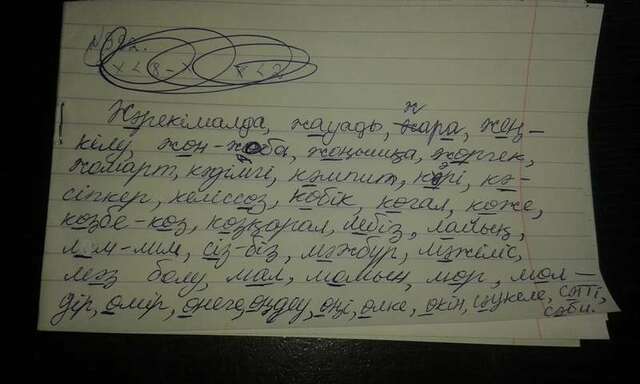 Жәрекімалда, жауады, жара, жең-
кілу, жөн-жоба, жеңьшиқа, жөргек,
жомарт, кәдімгі, кәмпит, кәрі, кә-
сіпкер, келіссөз, көбік, көгал, көже,
көзбе-көз, көзқарал, лебіз, лайың,
лом-лим, сіз-біз, мәжбүр, мәжіліс,
мәз болу, мал, момын, мөр, мөл-
дір, өмір, өнеге, өңдеу, өңі, өлке, өкін, сәукеле, сәтті,
сәби.